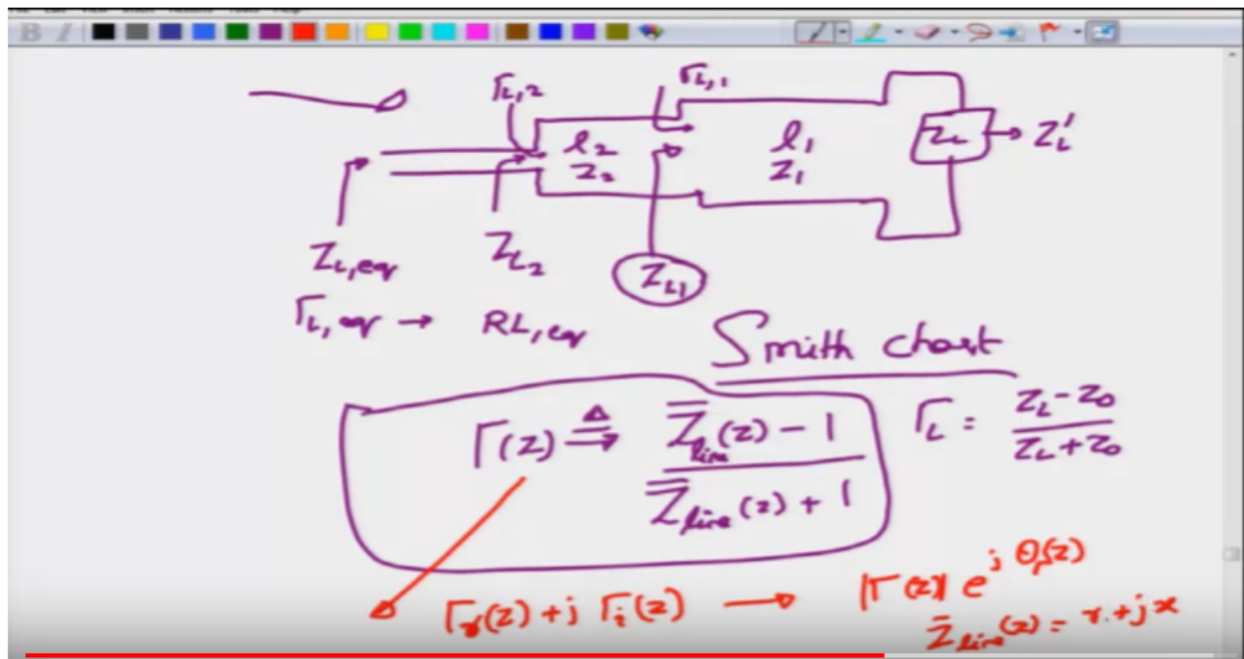 B I
Γ_{L,2} Γ_{L,1}
l_2 l_1 Z_L → Z_L'
Z_2 Z_1
Z_{L,eq} Z_{L2} Z_{L1}
Γ_{L,eq} → RL,eq
Smith chart
Γ(z) ≜ (Z̄_{line}(z) - 1) / (Z̄_{line}(z) + 1) Γ_L = (Z_L - Z_0) / (Z_L + Z_0)
Γ_r(z) + j Γ_i(z) → |Γ(z)| e^{jθ_r(z)}
Z̄_{line}(z) = r + jx